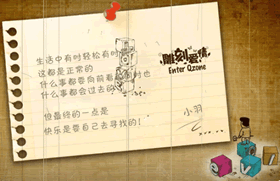 生活中有时轻松有时
这都是正常的
什么事都要向前看 时也
什么事都会过去的
但最终的一点是
快乐是要自己去寻找的!
小羽
雕刻爱情
Enter Qzone